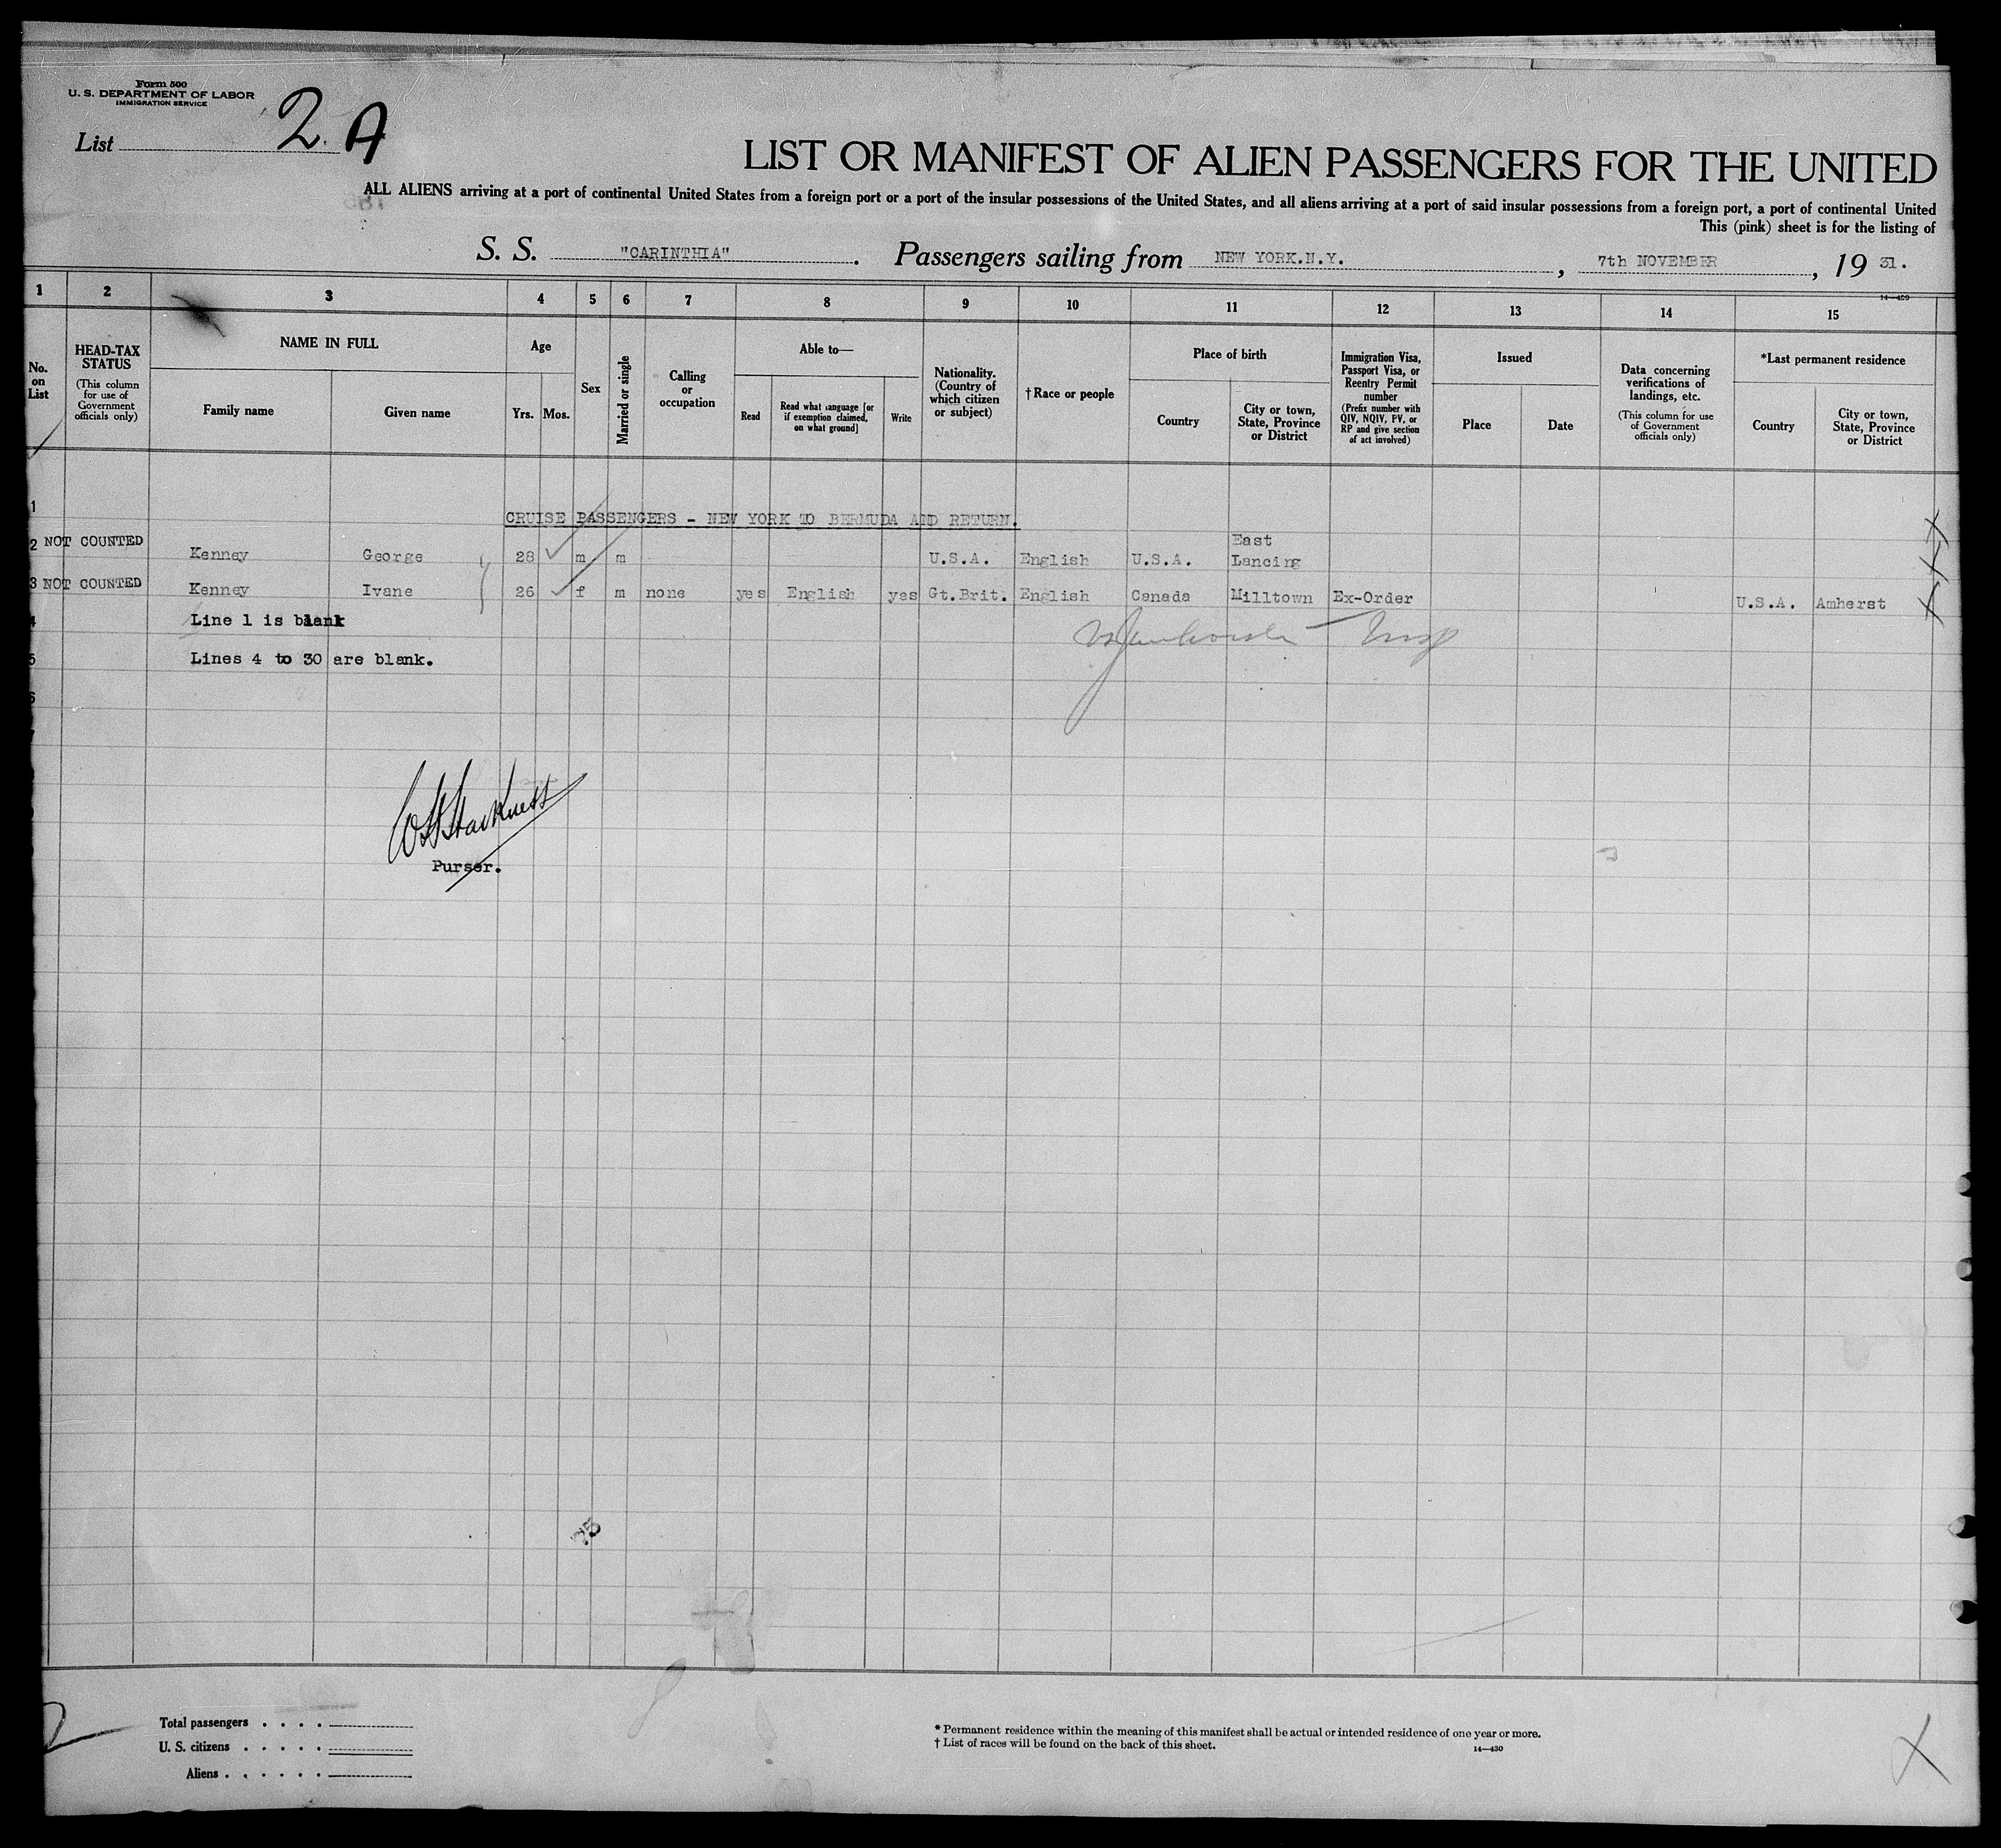 Form 500
U. S. DEPARTMENT OF LABOR
IMMIGRATION SERVICE
List 2. A
LIST OR MANIFEST OF ALIEN PASSENGERS FOR THE UNITED
ALL ALIENS arriving at a port of continental United States from a foreign port or a port of the insular possessions of the United States, and all aliens arriving at a port of said insular possessions from a foreign port, a port of continental United
This (pink) sheet is for the listing of
S. S. "CARINTHIA". Passengers sailing from NEW YORK.N.Y., 7th NOVEMBER, 19 31.
14—430
1 2 3 4 5 6 7 8 9 10 11 12 13 14 15
No. on List
HEAD-TAX STATUS
(This column for use of Government officials only)
NAME IN FULL
Family name Given name
Age
Yrs. Mos.
Sex
Married or single
Calling or occupation
Able to—
Read
Read what language [or if exemption claimed, on what ground]
Write
Nationality. (Country of which citizen or subject)
†Race or people
Place of birth
Country
City or town, State, Province or District
Immigration Visa, Passport Visa, or Reentry Permit number
(Prefix number with QIV, NQIV, PV, or RP and give section of act involved)
Issued
Place Date
Data concerning verifications of landings, etc.
(This column for use of Government officials only)
*Last permanent residence
Country
City or town, State, Province or District
1
CRUISE PASSENGERS - NEW YORK TO BERMUDA AND RETURN.
2 NOT COUNTED Kenney George 28 m m U.S.A. English U.S.A. East Lancing
3 NOT COUNTED Kenney Ivane 26 f m none yes English yes Gt.Brit. English Canada Milltown Ex-Order U.S.A. Amherst
4 Line 1 is blank
5 Lines 4 to 30 are blank.
6
7
Purser.
25
2
Total passengers . . . .
U. S. citizens . . . . .
Aliens . . . . . .
* Permanent residence within the meaning of this manifest shall be actual or intended residence of one year or more.
† List of races will be found on the back of this sheet.
14—430
X